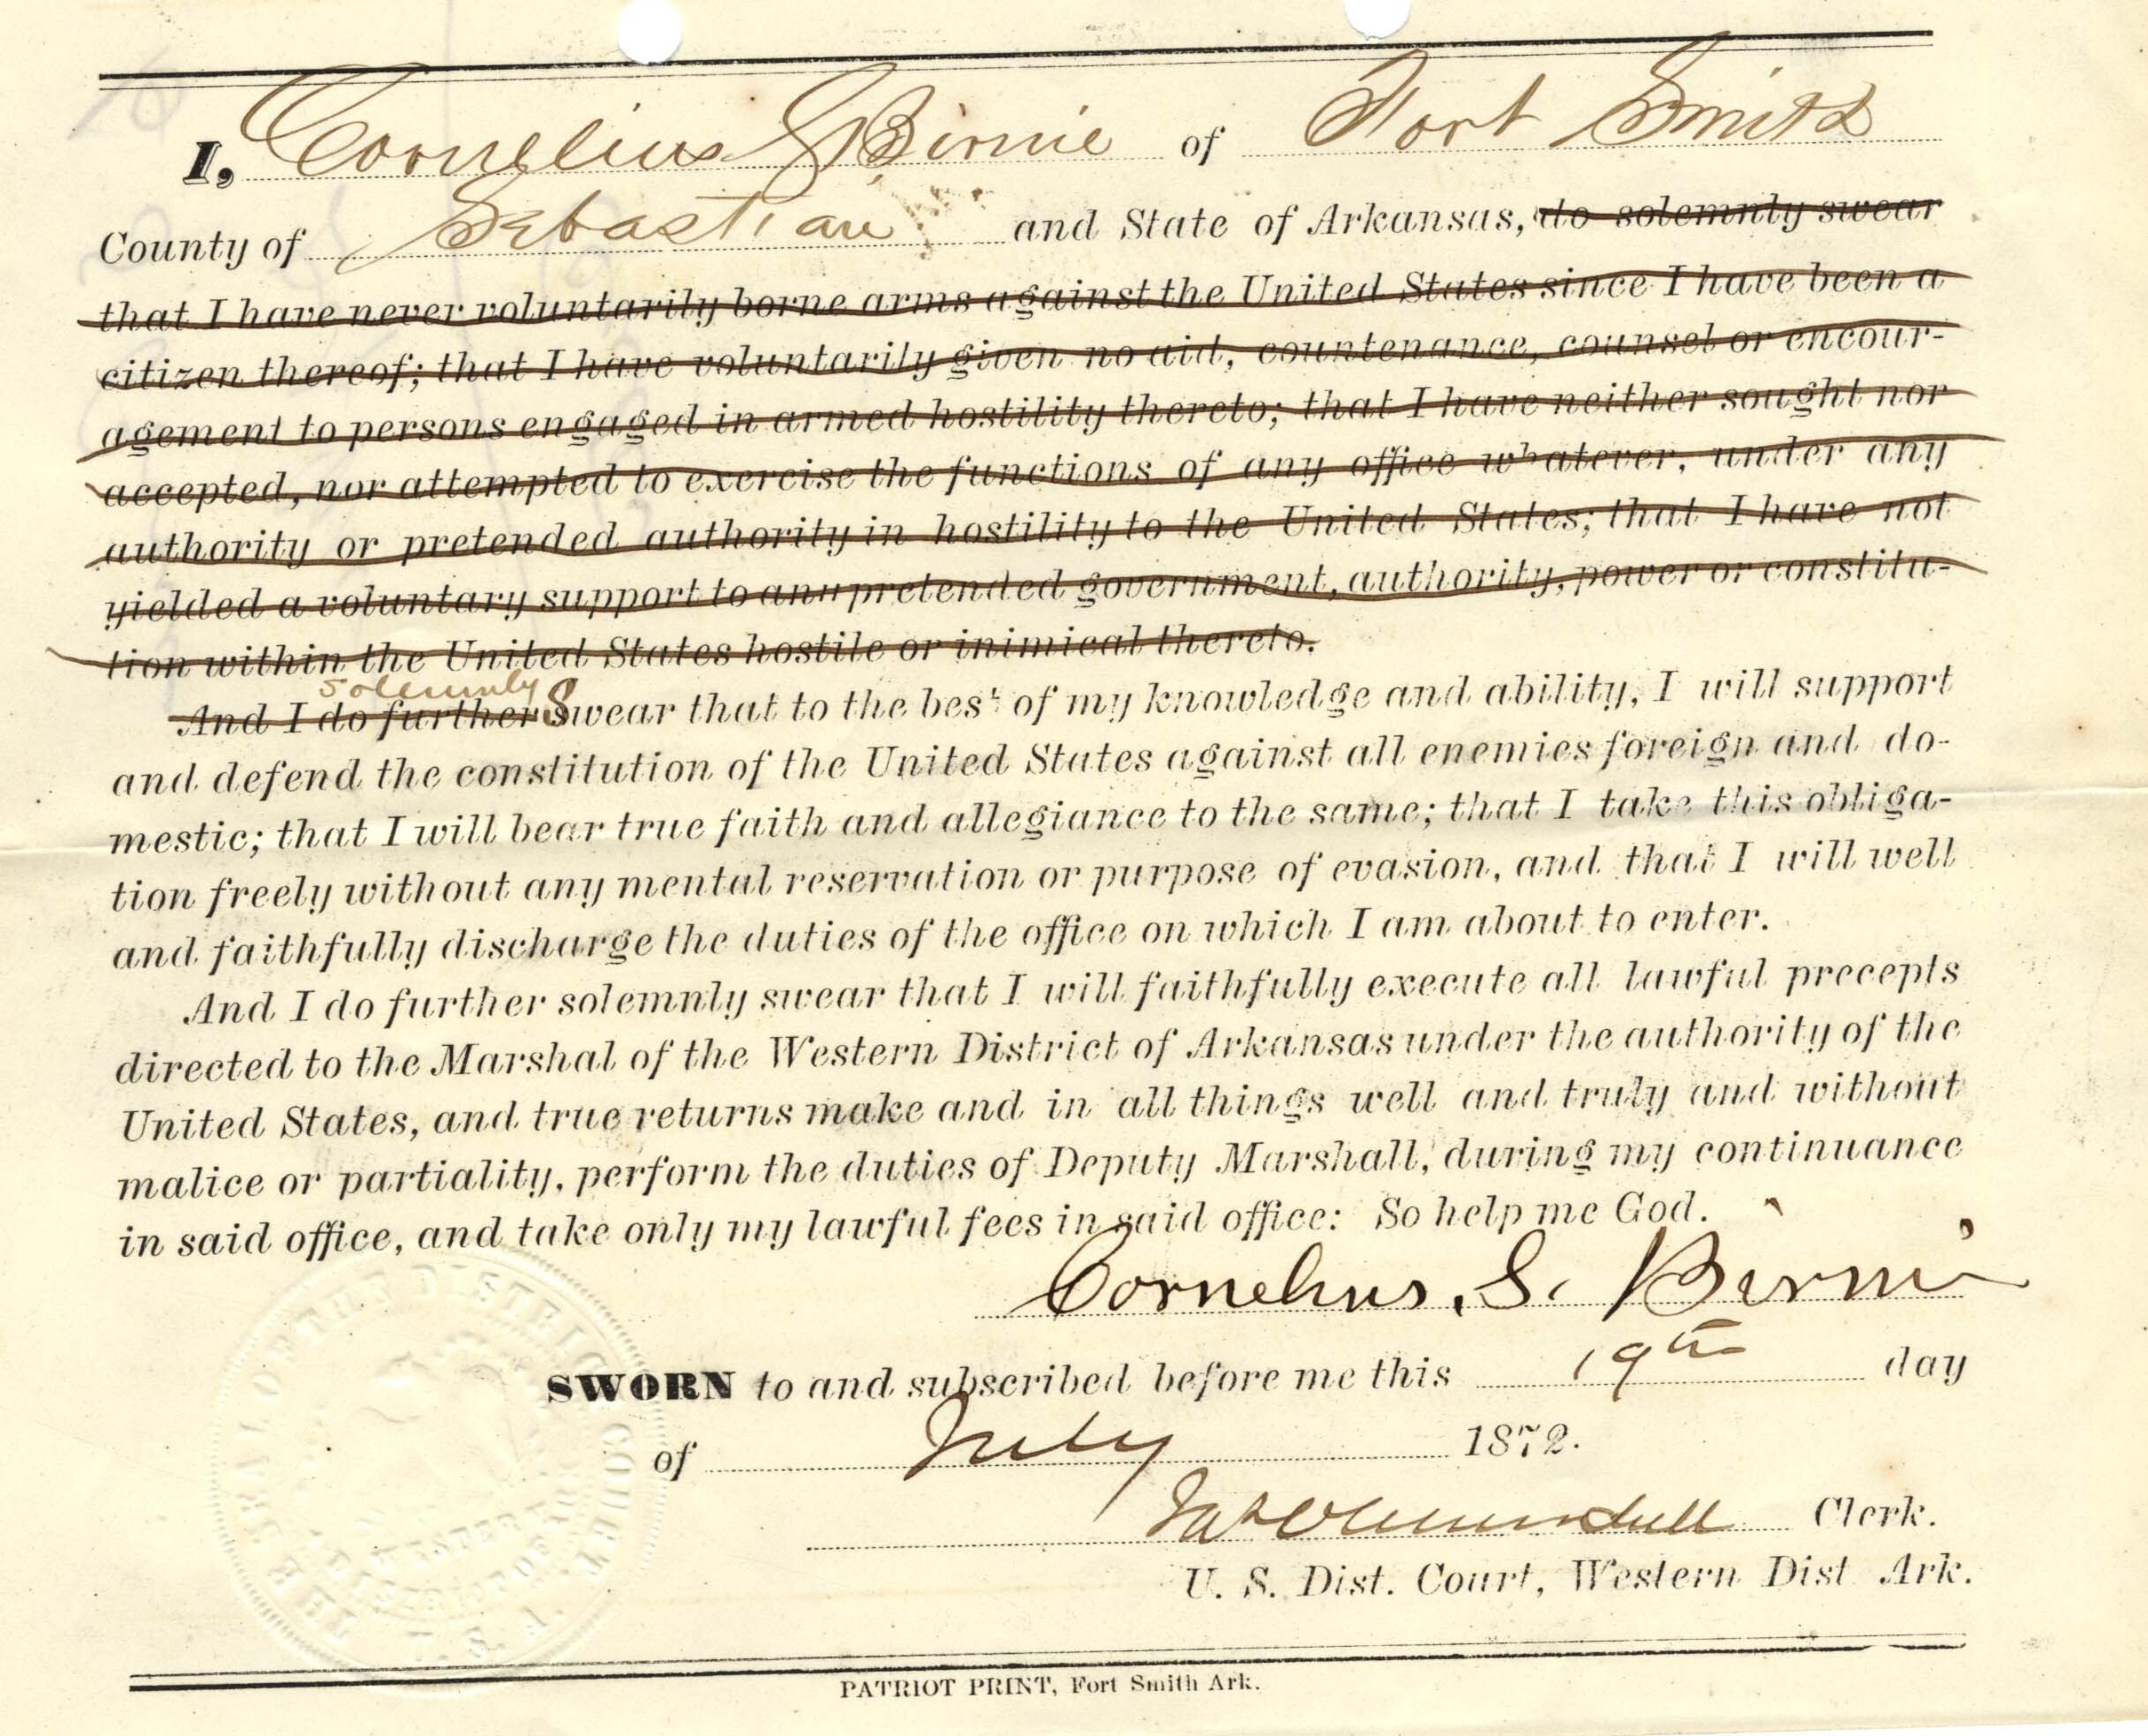 I, Cornelius S Birnie of Fort Smith
County of Sebastian and State of Arkansas, do solemnly swear
that I have never voluntarily borne arms against the United States since I have been a
citizen thereof; that I have voluntarily given no aid, countenance, counsel or encour-
agement to persons engaged in armed hostility thereto; that I have neither sought nor
accepted, nor attempted to exercise the functions of any office whatever, under any
authority or pretended authority in hostility to the United States; that I have not
yielded a voluntary support to any pretended government, authority, power or constitu-
tion within the United States hostile or inimical thereto.
solemnly
And I do further Swear that to the best of my knowledge and ability, I will support
and defend the constitution of the United States against all enemies foreign and do-
mestic; that I will bear true faith and allegiance to the same; that I take this obliga-
tion freely without any mental reservation or purpose of evasion, and that I will well
and faithfully discharge the duties of the office on which I am about to enter.
And I do further solemnly swear that I will faithfully execute all lawful precepts
directed to the Marshal of the Western District of Arkansas under the authority of the
United States, and true returns make and in all things well and truly and without
malice or partiality, perform the duties of Deputy Marshall, during my continuance
in said office, and take only my lawful fees in said office: So help me God.
Cornelius S. Birnie
SWORN to and subscribed before me this 19th day
of July 1872.
Clerk.
U. S. Dist. Court, Western Dist Ark.
PATRIOT PRINT, Fort Smith Ark.